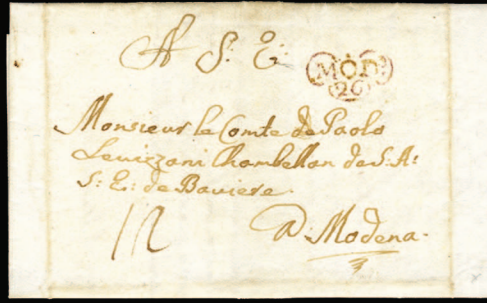 A S: E:
MOD
26
Monsieur le Comte de Paolo
Levizzani Chambellan de S: A:
S: E: de Baviere.
12
a Modena.